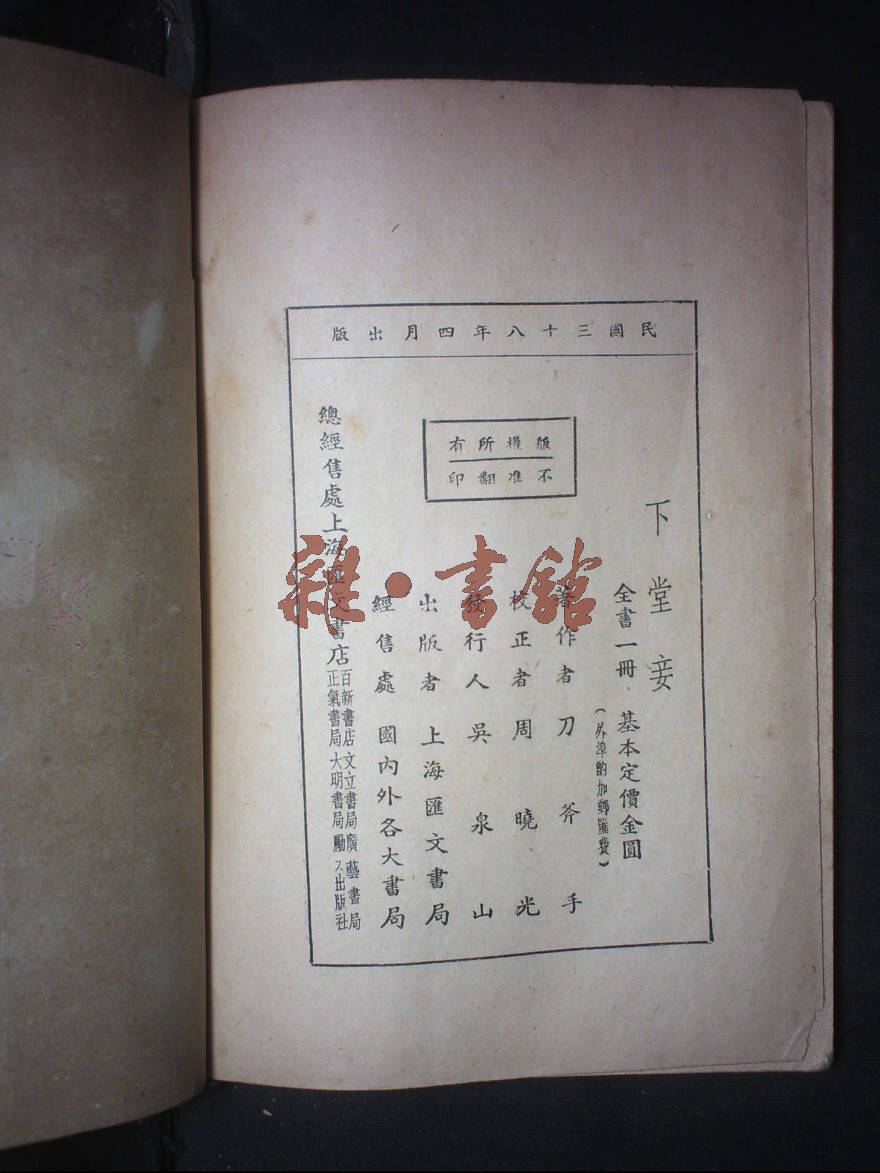 民國三十八年四月出版
版權所有
不准翻印
下堂妾
全書一冊 基本定價金圓
(外埠酌加郵匯費)
著作者 刀斧手
校正者 周曉光
發行人 吳泉山
出版者 上海匯文書局
經售處 國內外各大書局
總經售處 上海匯文書店
百新書店 文立書局 廣藝書局
正氣書局 大明書局 勵力出版社
雜·書館